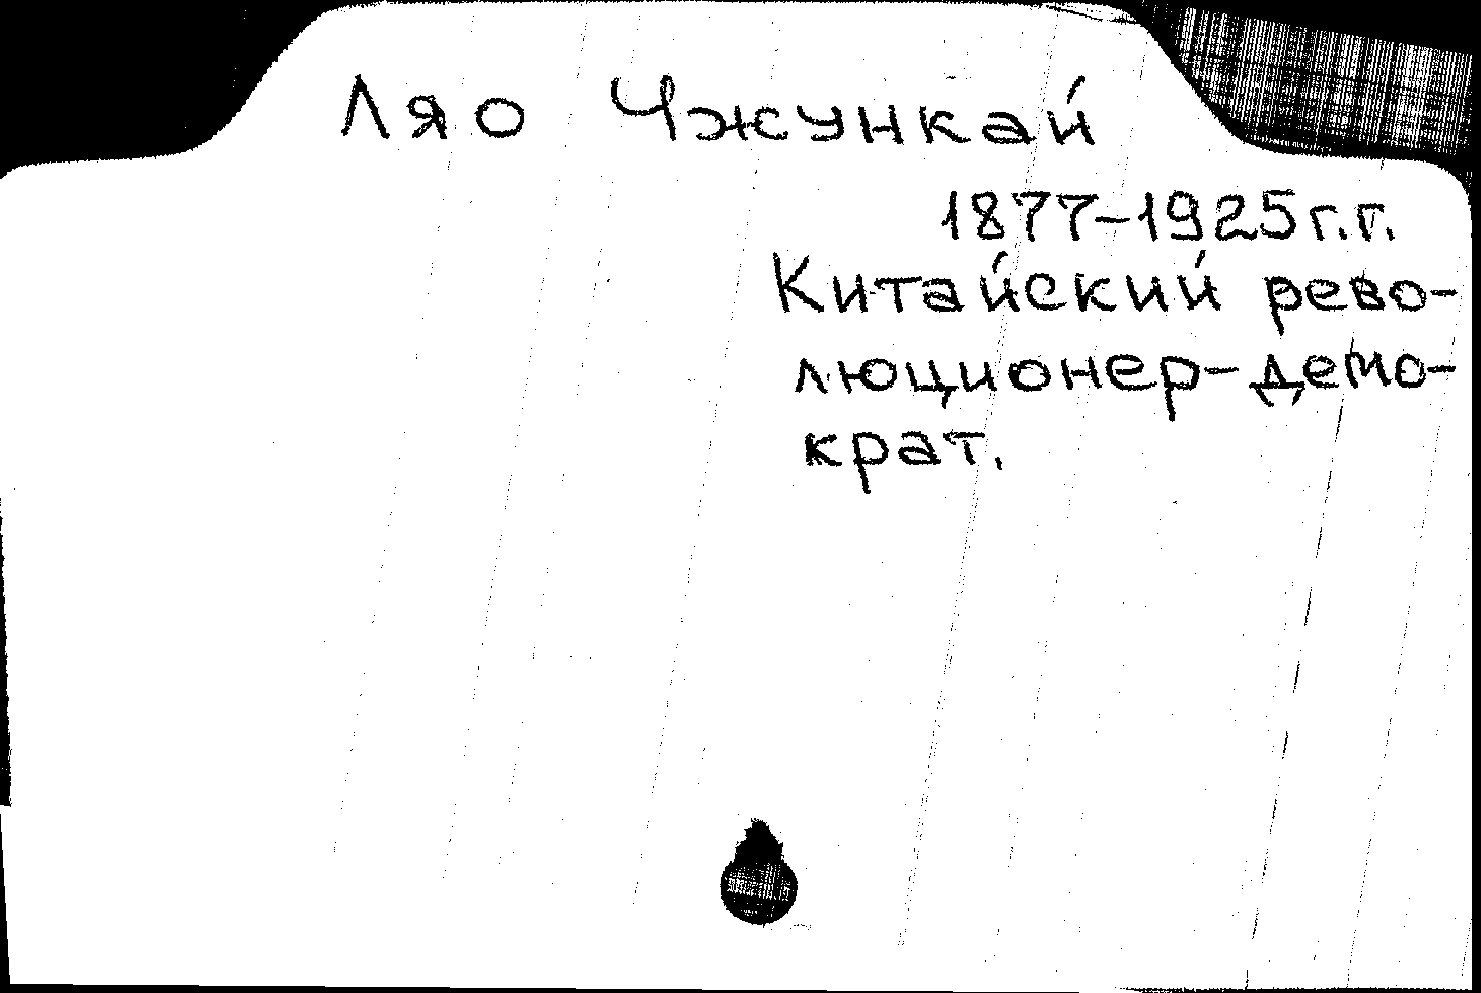 Ляо Чжункай
1877-1925г.г.
Китайский рево-
люционер-демо-
крат.